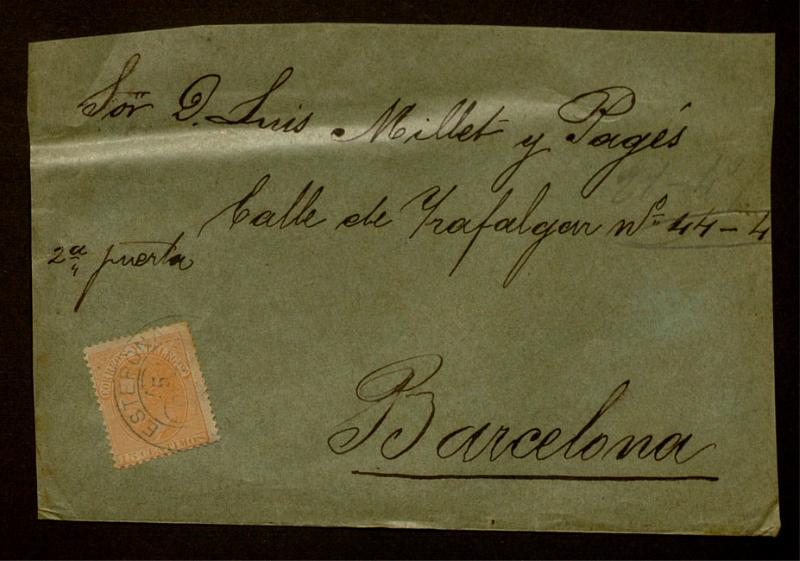 Sör D. Luis Millet y Pagés
Calle de Trafalgar nº 44-4
2ª puerta
Barcelona
CORREOS Y TELEGFOS
ESTEPONA
15 CENTIMOS